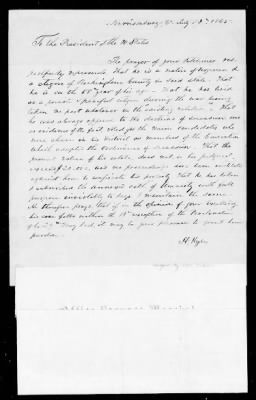 Harrisonburg Va July 13th 1865.
To the President of the U States
The prayer of your Petitioner res-
pectfully represents That he is a native of Virginia &
a citizen of Rockingham County in said state. That
he is in the 68th year of his age. That he has lived
as a private & peaceful citizen during the war having
taken no part whatever in the existing rebellion. That
he was always opposed to the doctrine of secession and
as evidence of the fact voted for the Union candidates who
were chosen in his District as members of the Convention
which adopted the Ordinance of Secession. That the
present value of his estate does not in his judgment
exceed $20.000. and no proceedings have been instituted
against him to confiscate his property. That he has taken
& subscribed the annexed oath of Amnesty with full
purpose inviolably to keep & maintain the same.
He therefore prays that if in the opinion of your Excellency
his case falls within the 13th exception of the Proclamation
of the 29th May last, it may be your pleasure to grant him
pardon.